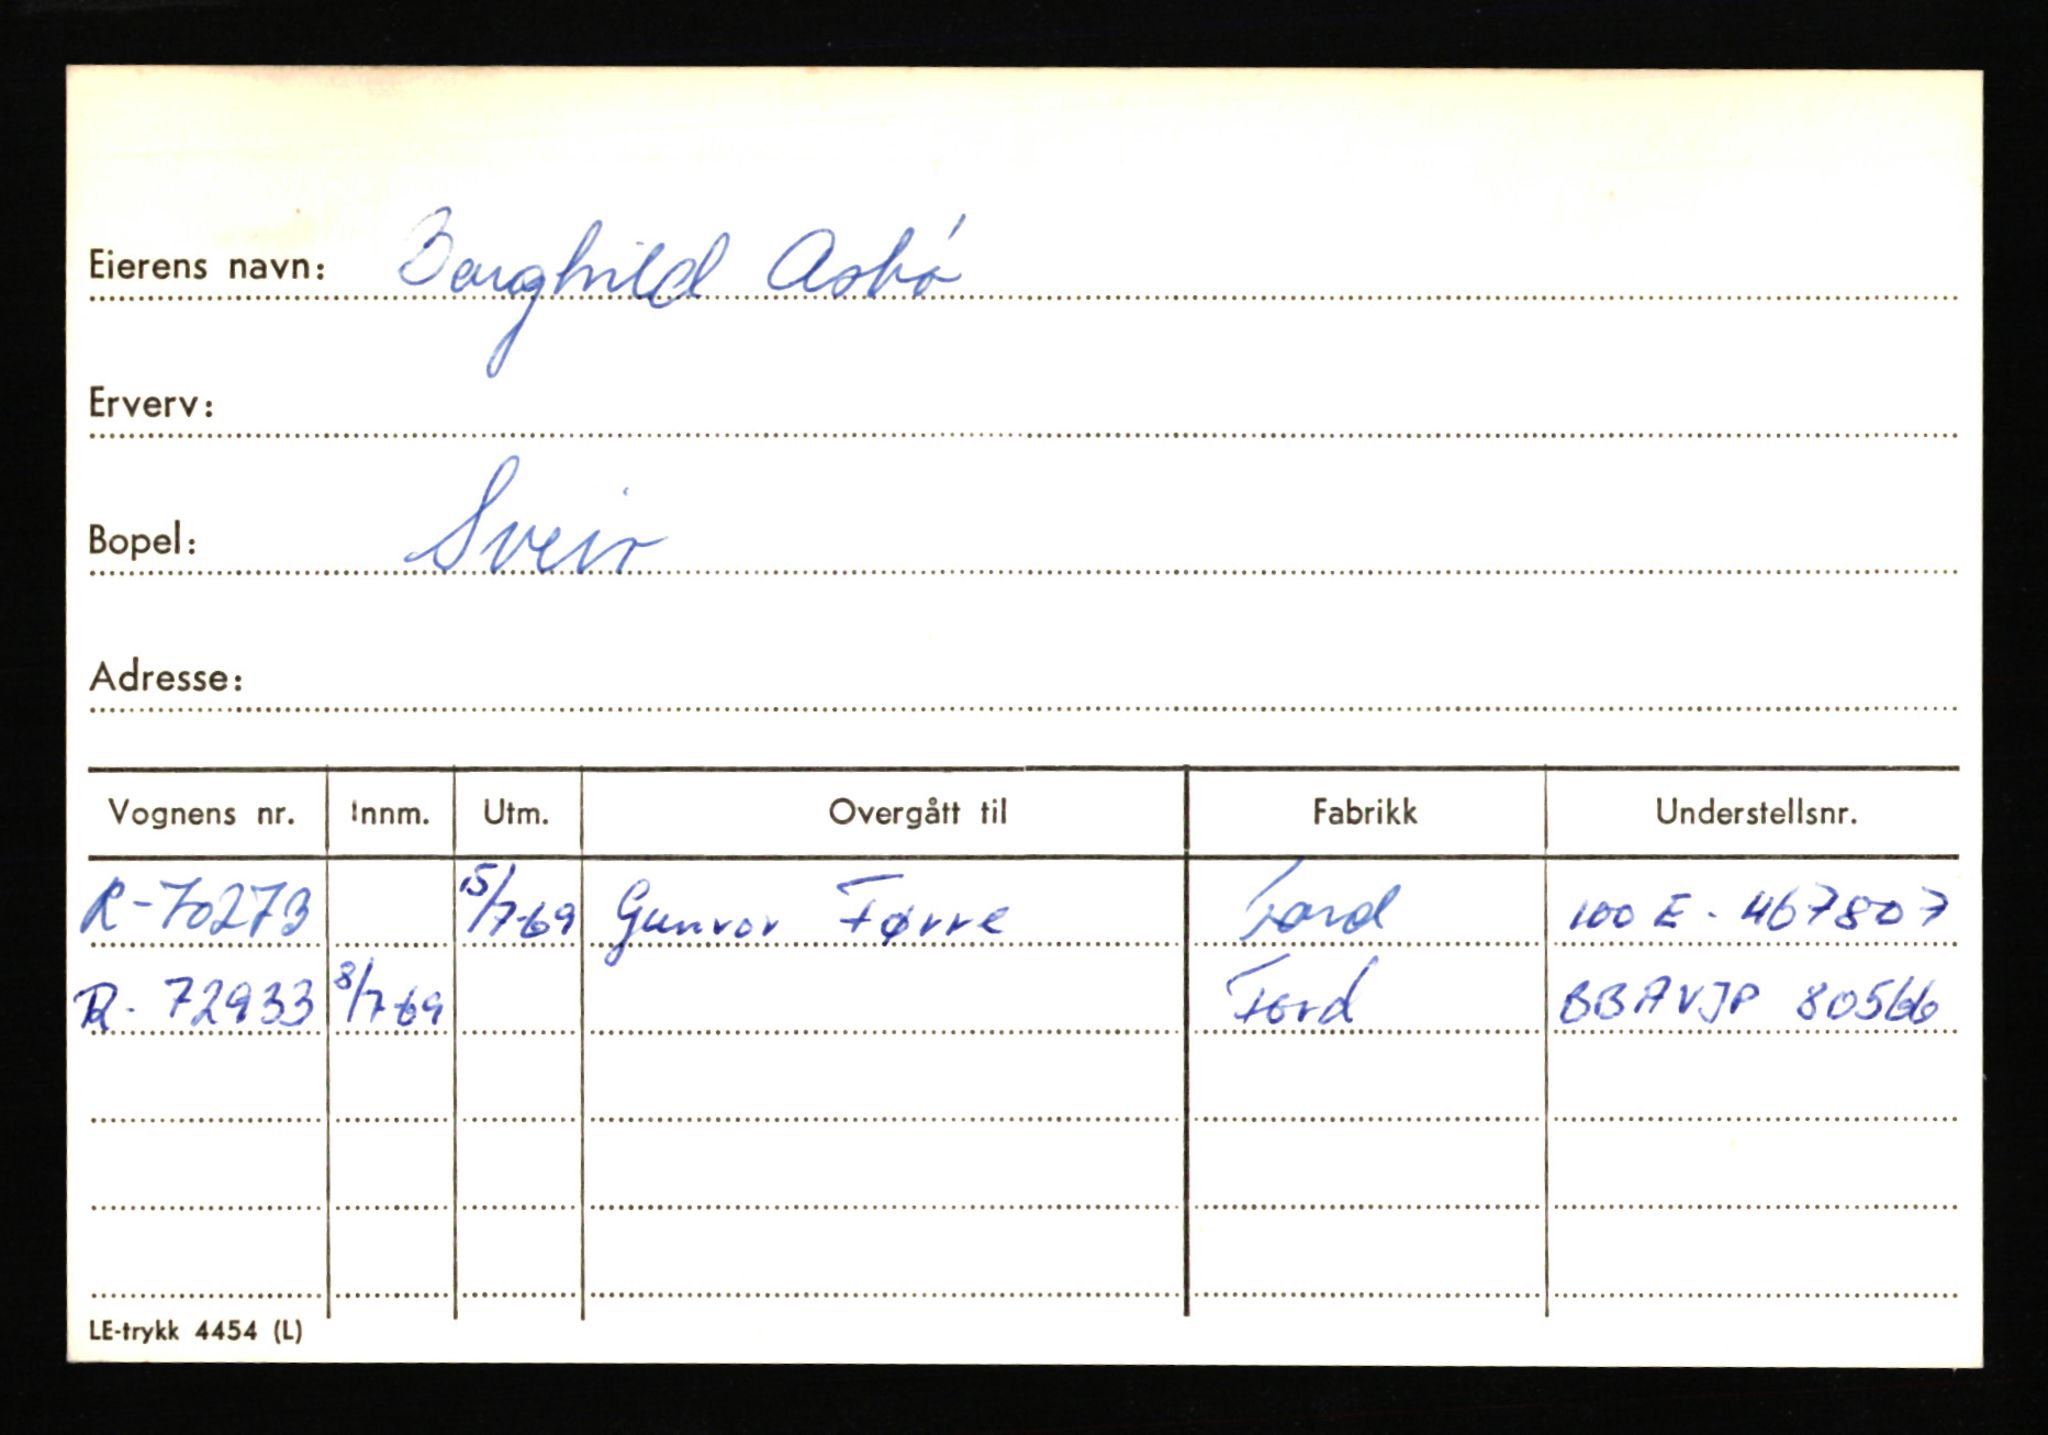 Eierens navn: Borghild Asbó
Erverv:
Bopel: Sveio
Adresse:
Vognens nr. Innm. Utm. Overgått til Fabrikk Understellsnr.
R-70273 15/7-69 Gunvor Førre Ford 100 E - 467807
R- 72933 8/7-69 Ford BBAVJP 80566
LE-trykk 4454 (L)